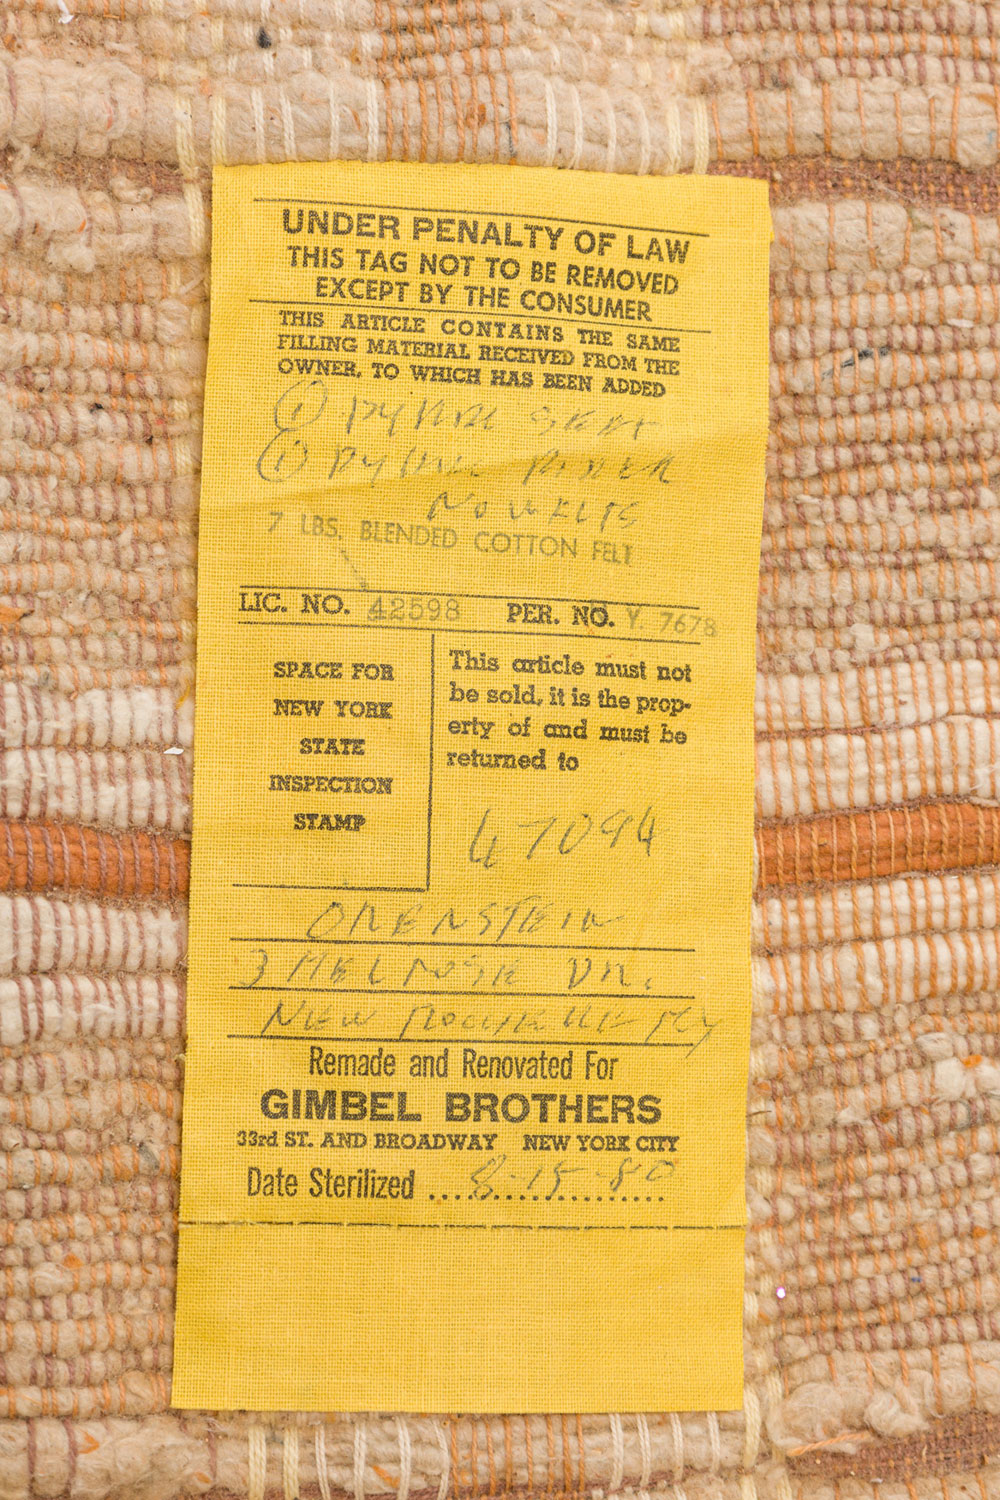 UNDER PENALTY OF LAW
THIS TAG NOT TO BE REMOVED
EXCEPT BY THE CONSUMER
THIS ARTICLE CONTAINS THE SAME
FILLING MATERIAL RECEIVED FROM THE
OWNER, TO WHICH HAS BEEN ADDED
①
①
7 LBS. BLENDED COTTON FELT
LIC. NO. 42598 PER. NO. Y. 7678
SPACE FOR
NEW YORK
STATE
INSPECTION
STAMP
This article must not
be sold, it is the prop-
erty of and must be
returned to
47094
ORENSTEIN
3 MELROSE DR.
NEW ROCHELLE NY
Remade and Renovated For
GIMBEL BROTHERS
33rd ST. AND BROADWAY NEW YORK CITY
Date Sterilized 8-15-80